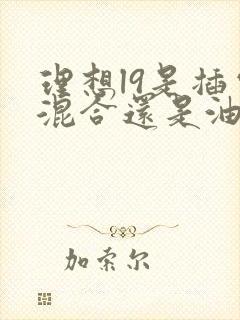 理想l9是插
混合還是油
加索尔